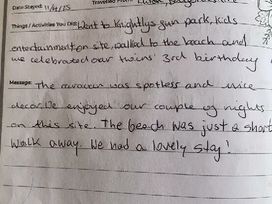 Date Stayed: 11/4/25 Travelled From: Luton, Bedfordshire
Things / Activities You Did: Went to Knightlys fun park, kids
entertainment on site, walked to the beach and
we celebrated our twins' 3rd birthday
Message: The caravan was spotless and nice
decor. We enjoyed our couple of nights
on this site. The beach was just a short
walk away. We had a lovely stay!